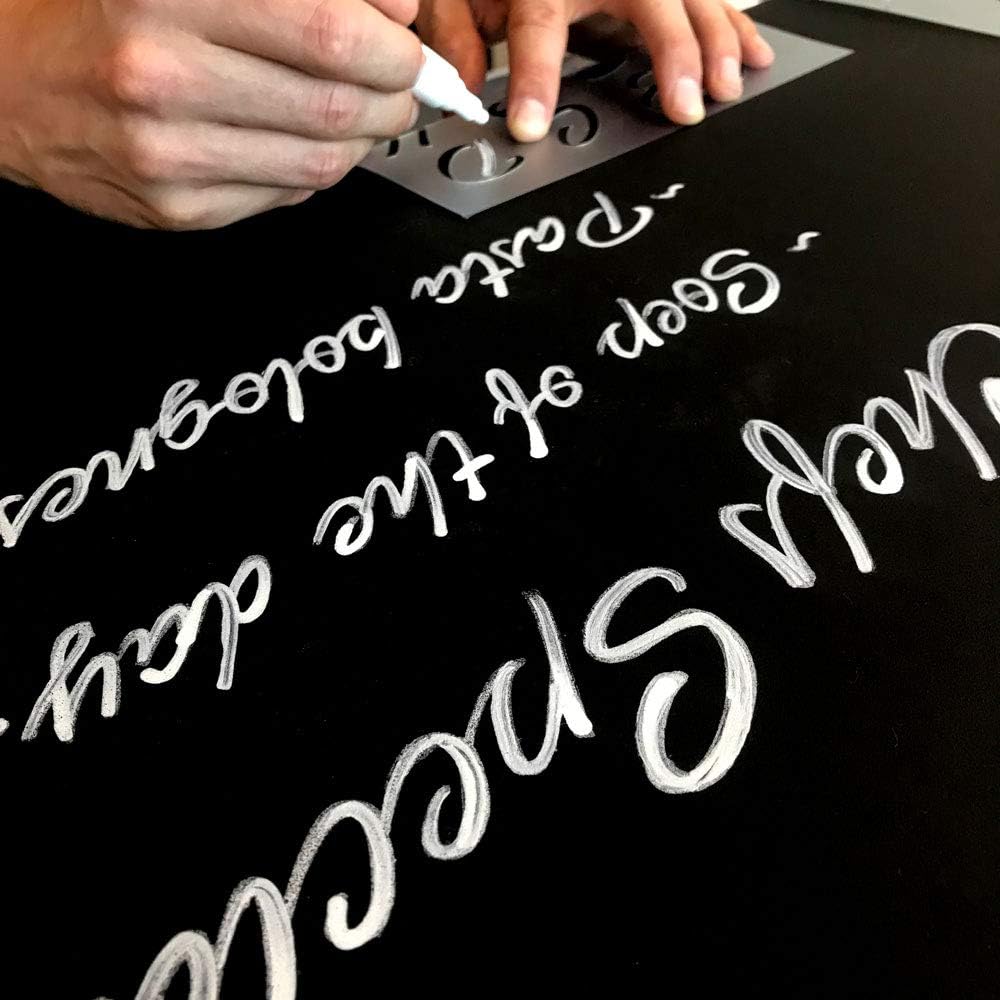 Chefs Special
~ Soep of the day -
~ Pasta bolognes